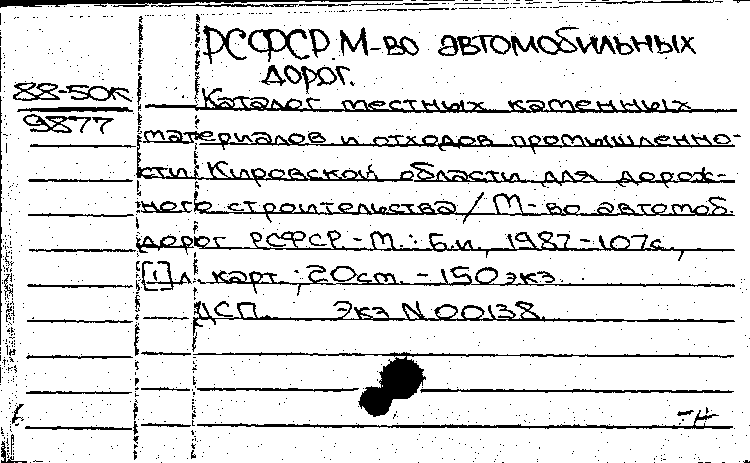 РСФСР. М-во автомобильных
дорог.
88-50к
9877
Каталог местных каменных
материалов и отходов промышленно-
сти Кировской области для дорож-
ного строительства / М-во автомоб.
дорог РСФСР. - М. : Б.и., 1987 - 107с.,
[1] л. карт. ; 20см. - 150 экз.
ДСП. Экз N 00138.